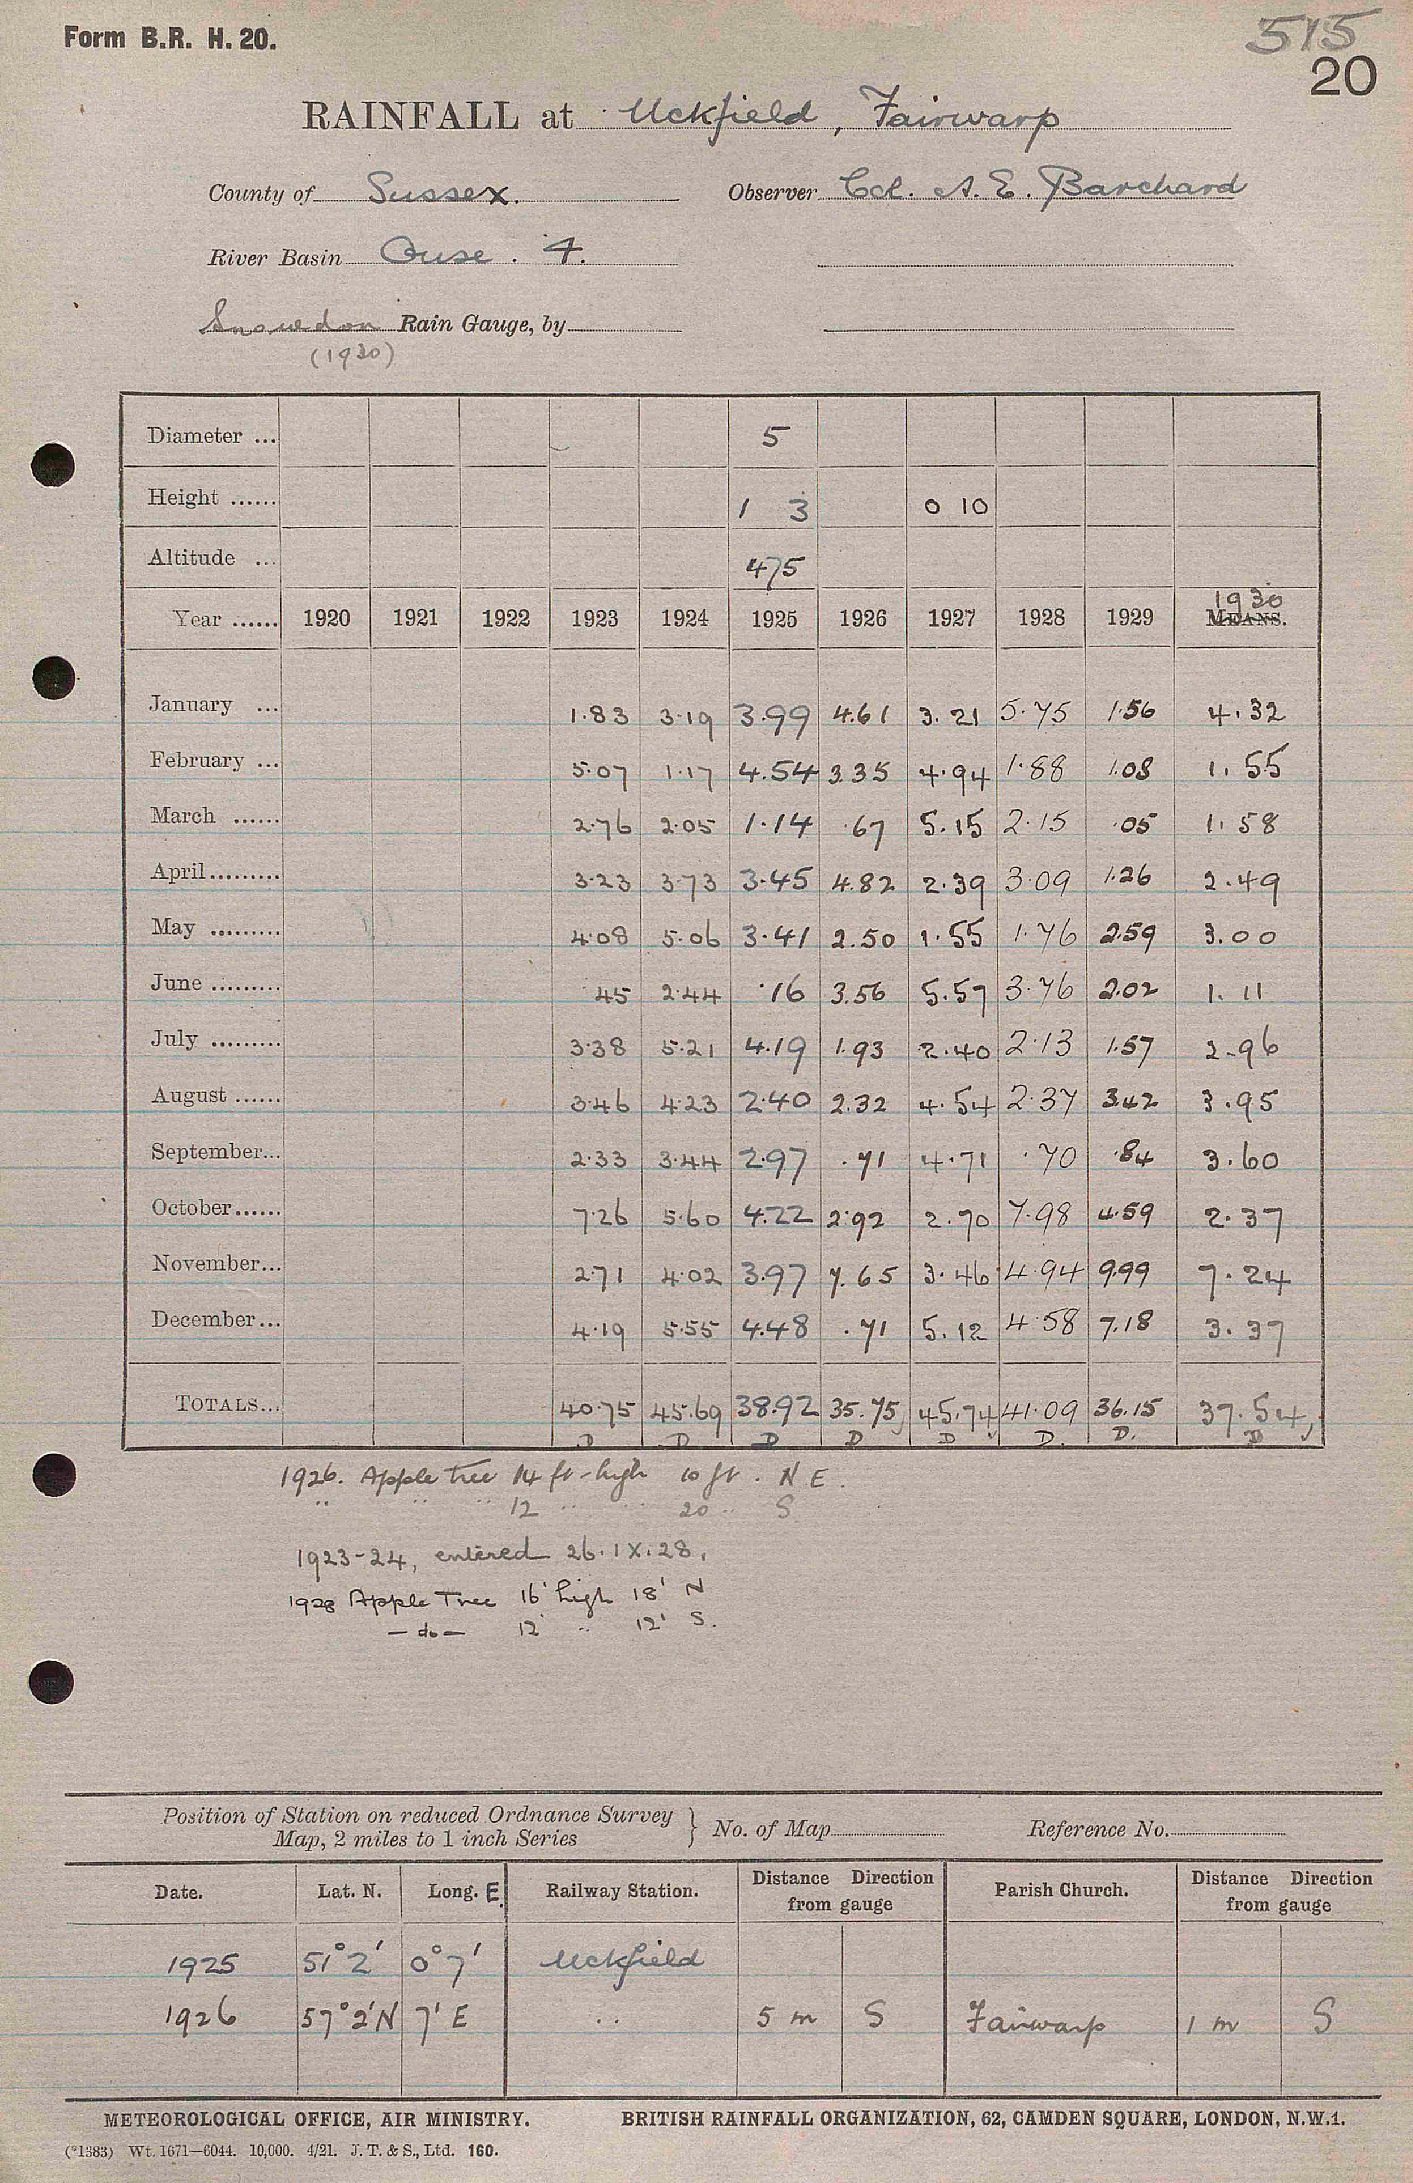 Form B.R. H. 20.
515
20
RAINFALL at Uckfield, Fairwarp
County of Sussex. Observer Col. A. E. Barchard
River Basin Ouse. 4.
Snowdon Rain Gauge, by
(1930)
Diameter ... 5
Height ...... 1 3 0 10
Altitude ... 475
Year ...... 1920 1921 1922 1923 1924 1925 1926 1927 1928 1929 1930 MEANS.
January ... 1.83 3.19 3.99 4.61 3.21 5.75 1.56 4.32
February ... 5.07 1.17 4.54 3.35 4.94 1.88 1.08 1.55
March ...... 2.76 2.05 1.14 .67 5.15 2.15 .05 1.58
April......... 3.23 3.73 3.45 4.82 2.39 3.09 1.26 2.49
May ......... 4.08 5.06 3.41 2.50 1.55 1.76 2.59 3.00
June ......... 45 2.44 .16 3.56 5.57 3.76 2.02 1.11
July ......... 3.38 5.21 4.19 1.93 2.40 2.13 1.57 2.96
August ...... 3.46 4.23 2.40 2.32 4.54 2.37 3.42 3.95
September... 2.33 3.44 2.97 .71 4.71 .70 .84 3.60
October...... 7.26 5.60 4.22 2.92 2.70 7.98 4.59 2.37
November... 2.71 4.02 3.97 7.65 3.46 4.94 9.99 7.24
December... 4.19 5.55 4.48 .71 5.12 4.58 7.18 3.37
TOTALS... 40.75 45.69 38.92 35.75 45.74 41.09 36.15 37.54
D D D D D D. D. D
1926. Apple tree 14 ft-high 10 ft. N E.
" " " 12 " " 20 " S
1923-24, entered 26.IX.28.
1928 Apple Tree 16' high 18' N
— do — 12' " 12' S.
Position of Station on reduced Ordnance Survey
Map, 2 miles to 1 inch Series } No. of Map Reference No.
Date. Lat. N. Long. E. Railway Station. Distance Direction from gauge Parish Church. Distance Direction from gauge
1925 51°2' 0°7' Uckfield
1926 57°2'N 7'E " 5 m S Fairwarp 1 m S
METEOROLOGICAL OFFICE, AIR MINISTRY. BRITISH RAINFALL ORGANIZATION, 62, CAMDEN SQUARE, LONDON, N.W.1.
(*1383) Wt. 1671—6044. 10,000. 4/21. J. T. & S., Ltd. 160.